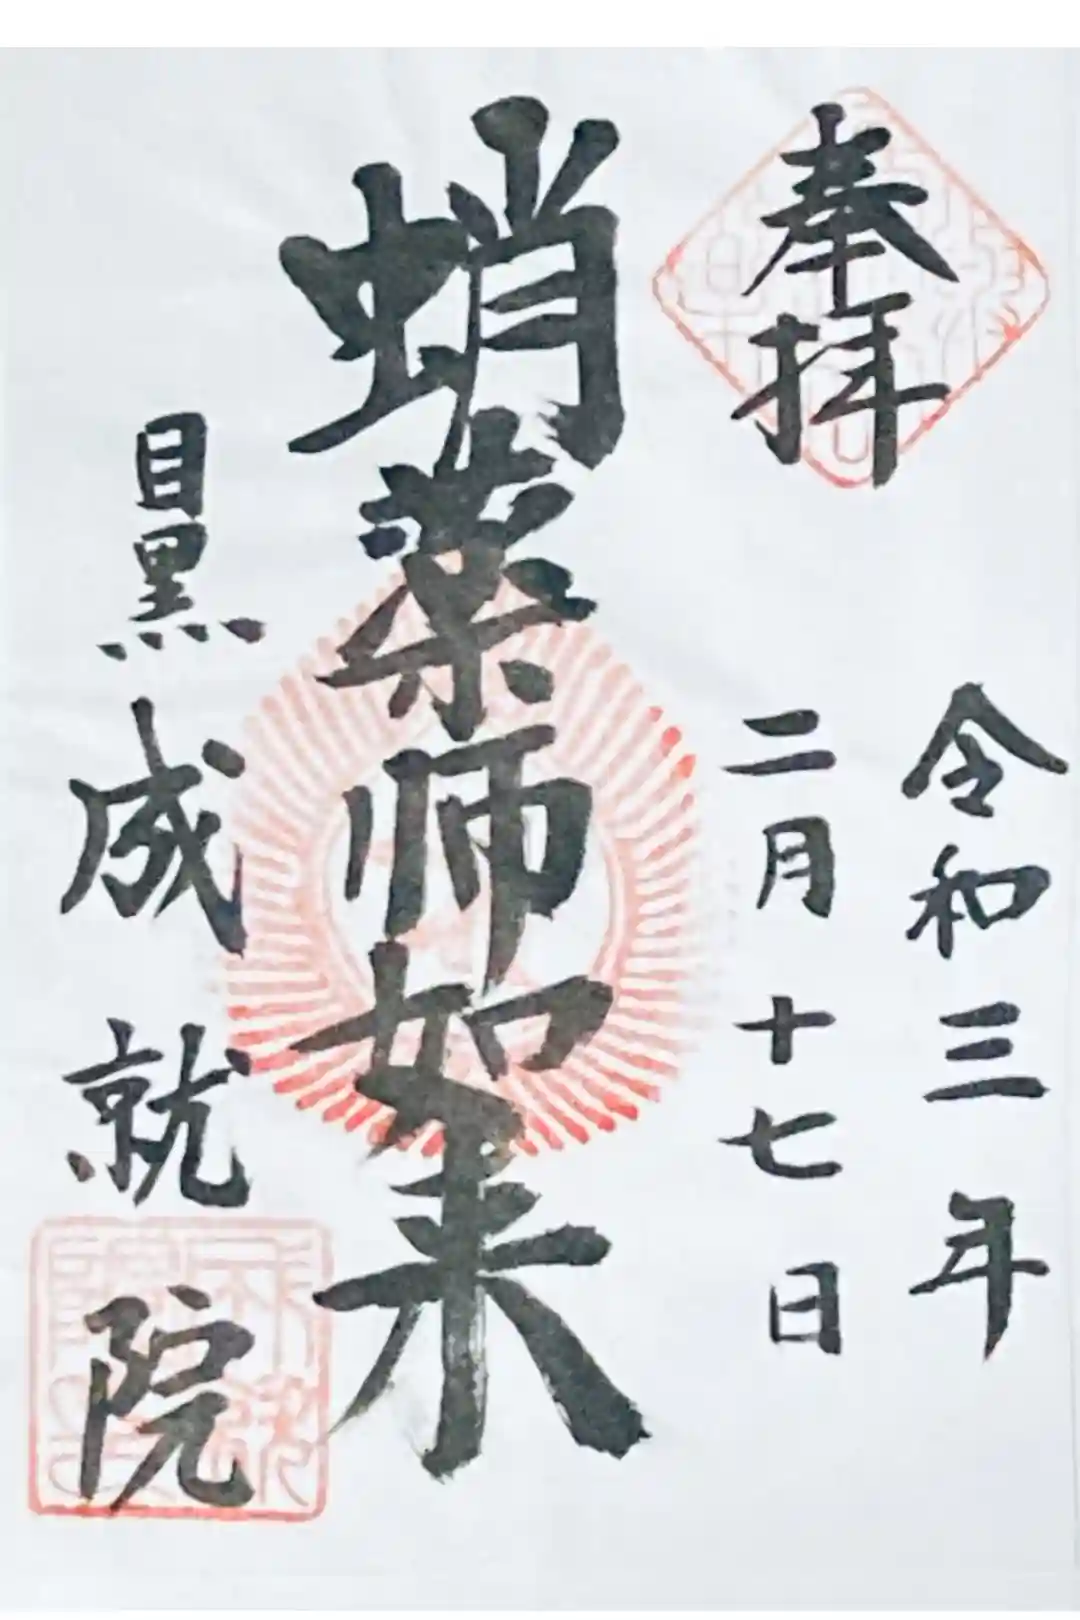 奉拝
令和三年
二月十七日
蛸薬师如来
目黒成就院